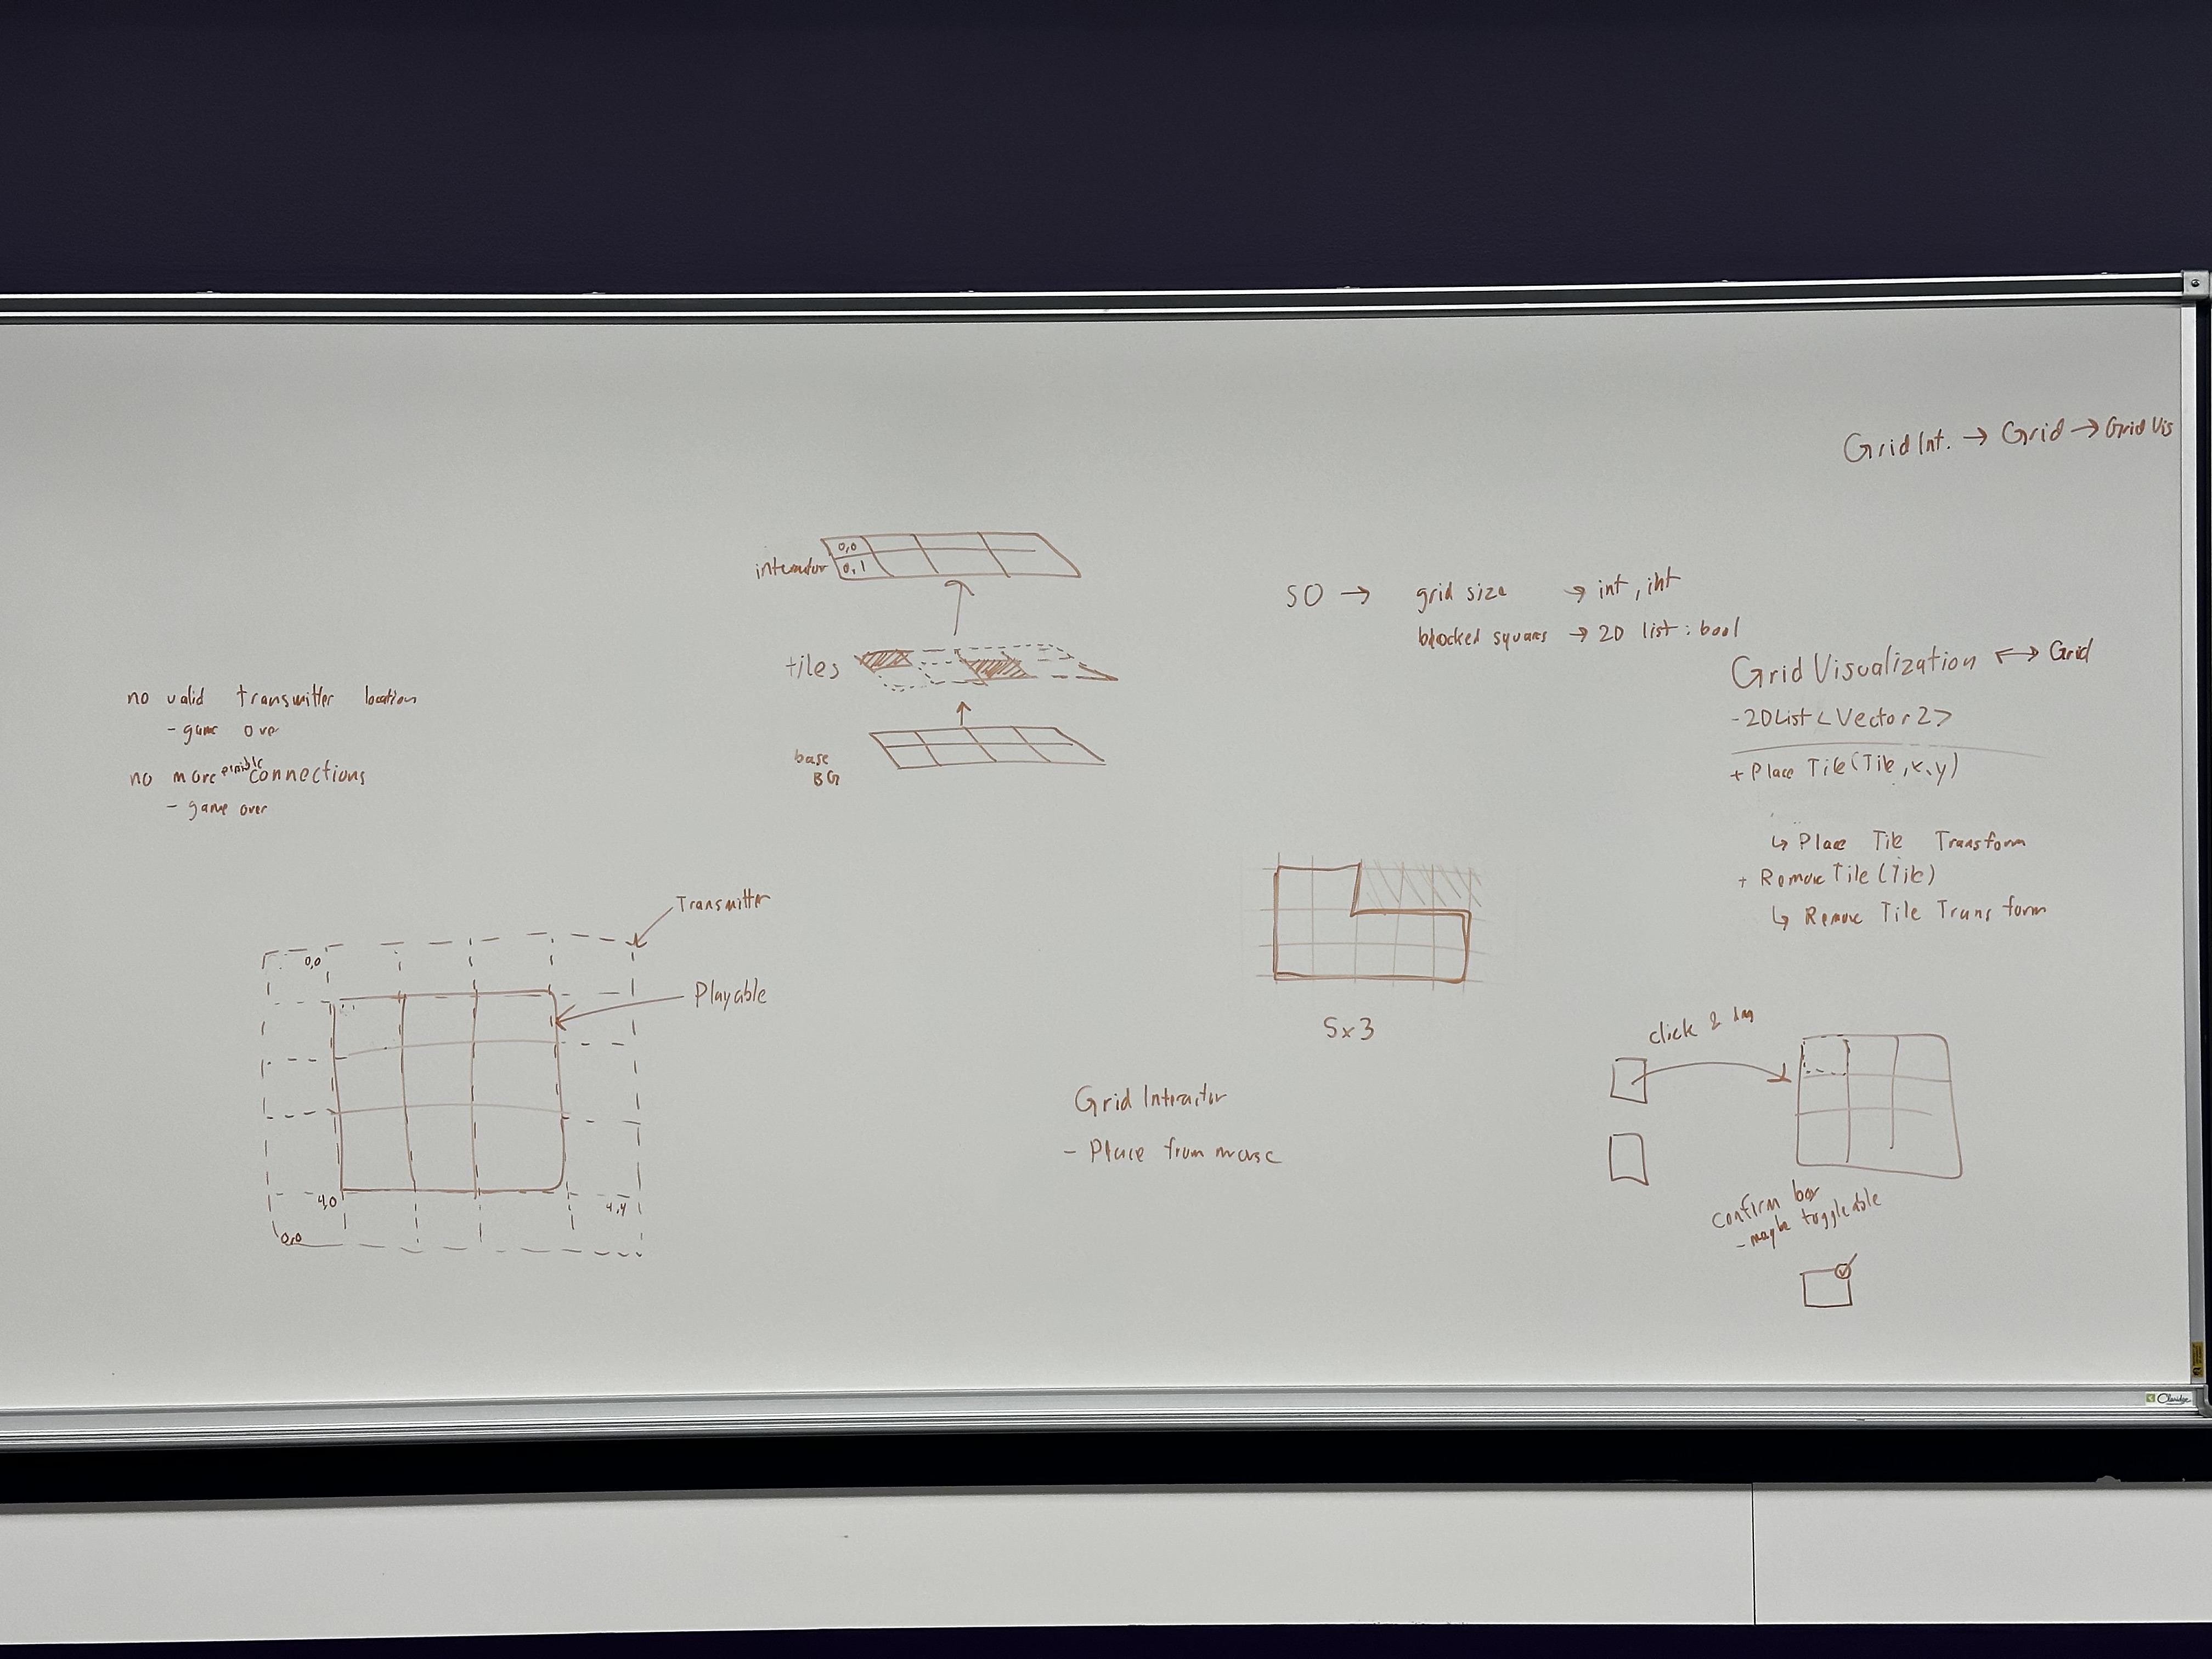 Grid Int. → Grid → Grid Vis
interactor
0,0
0,1
tiles
base
BG
SO → grid size → int, int
blocked squares → 2D list : bool
Grid Visualization ↔ Grid
- 2DList<Vector2>
+ Place Tile(Tile, x, y)
↳ Place Tile Transform
+ Remove Tile(Tile)
↳ Remove Tile Transform
no valid transmitter location
- game over
no more possible connections
- game over
Transmitter
Playable
0,0
4,0
4,4
0,0
5x3
Grid Interactor
- Place from mouse
click & drag
confirm box
- maybe toggleable
Claridge